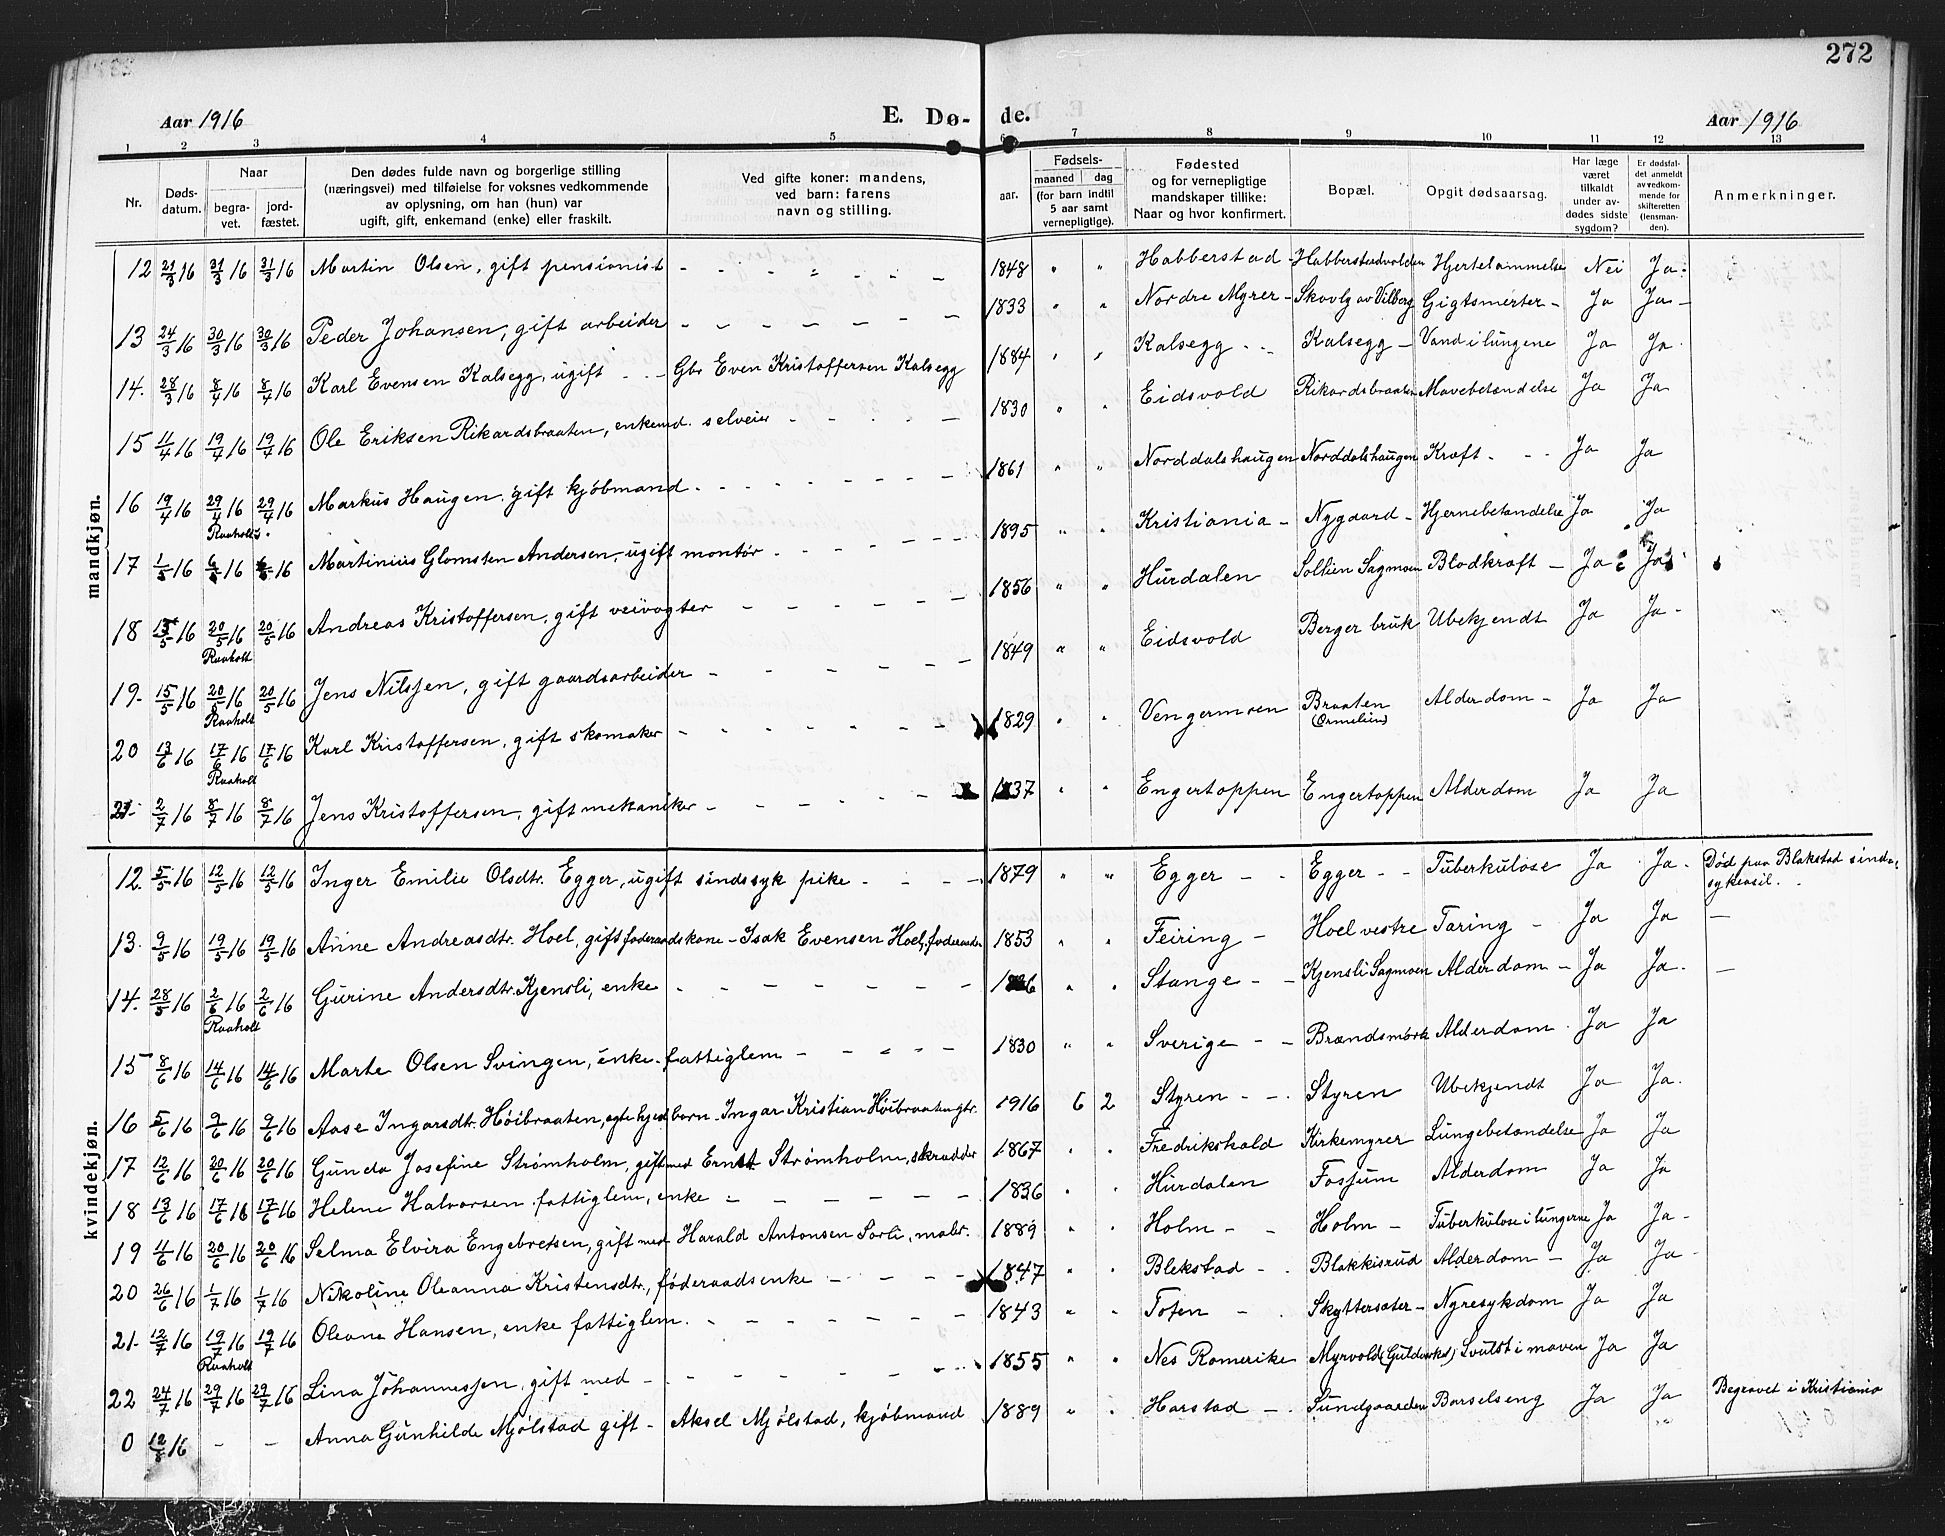 272
Aar 1916 E. Dø- de. Aar 1916
1 2 3 4 5 6 7 8 9 10 11 12 13
Nr. Døds-datum. Naar begra-vet. jord-fæstet. Den dødes fulde navn og borgerlige stilling (næringsvei) med tilføielse for voksnes vedkommende av oplysning, om han (hun) var ugift, gift, enkemand (enke) eller fraskilt. Ved gifte koner: mandens, ved barn: farens navn og stilling. aar. Fødsels- maaned dag (for barn indtil 5 aar samt vernepligtige). Fødested og for vernepligtige mandskaper tillike: Naar og hvor konfirmert. Bopæl. Opgit dødsaarsag. Har læge været tilkaldt under av-dødes sidste sygdom? Er dødsfal-det anmeldt av vedkom-mende for skifteretten (lensman-den). Anmerkninger.
mandkjøn.
12 21/3 16 31/3 16 31/3 16 Martin Olsen, gift pensionist - - - - - - 1848 " " Habberstad - Habberstadvolden Hjertelammelse Nei Ja -
13 24/3 16 30/3 16 30/3 16 Peder Johansen, gift arbeider - - - - - - - 1833 " " Nordre Myrer - Skovlg av Vilberg Gigtsmerter - Ja Ja -
14. 28/3 16 8/4 16 8/4 16 Karl Evensen Kalsegg, ugift - - Gbr Even Kristoffersen Kalsegg 1884 " " Kalsegg - - Kalsegg - Vand i lungene Ja Ja.
15 11/4 16 19/4 16 19/4 16 Ole Eriksen Rikardsbraaten, enkemd. selveier - - - - - 1830 " " Eidsvold Rikardsbraaten Mavebetændelse Ja Ja
16 19/4 16 29/4 16 29/4 16 Markus Haugen, gift kjøbmand - - - - - - - 1861 " " Norddalshaugen Norddalshaugen Kræft - - - Ja Ja
Raaholt
17 1/5 16 6/5 16 6/5 16 Martinius Glomsten Andersen, ugift montør - - - - - - 1895 " " Kristiania - Nygaard - Hjernebetændelse Ja Ja
18 15/5 16 20/5 16 20/5 16 Andreas Kristoffersen, gift veivogter - - - - - - 1856 " " Hurdalen Sollien Sagmoen Blodkræft - Ja Ja
Raaholt
19. 15/5 16 20/5 16 20/5 16 Jens Nilssen, gift gaardsarbeider - - - - - - 1849 " " Eidsvold Berger bruk Ubekjendt Ja Ja -
Raaholt
20 13/6 16 17/6 16 17/6 16 Karl Kristoffersen, gift skomaker - - - - - - - 1829 " " Vengermoen Braaten (Ormelien) Alderdom - Ja Ja
Raaholt
21- 2/7 16 8/7 16 8/7 16 Jens Kristoffersen, gift mekaniker - - - - - - 1837 " " Engertoppen Engertoppen Alderdom Ja Ja
kvindekjøn.
12. 5/5 16 12/5 16 12/5 16 Inger Emilie Olsdtr. Egger, ugift sindssyk pike - - - - 1879 " " Egger - - Egger - - Tuberkulose Ja Ja - Død paa Blakstad sinds-
sykeasil.
13. 9/5 16 19/5 16 19/5 16 Anne Andreasdtr. Hoel, gift føderaadskone - Isak Evensen Hoel, føderaads- 1853 " " Feiring - Hoel vestre Tæring - Ja Ja -
14. 28/5 16 2/6 16 2/6 16 Gurine Andersdtr. Kjensli, enke - - - - - - - " " Stange - - Kjensli Sagmoen Alderdom - Ja Ja. -
Raaholt
15 8/6 16 14/6 16 14/6 16 Marte Olsen Svingen, enke - fattiglem - - - - - 1830 " " Sverige - - Brændsmørk Alderdom. Ja Ja
16 5/6 16 9/6 16 9/6 16 Aase Ingarsdtr. Høibraaten, egte hjed barn - Ingar Kristian Høibraatengtr. 1916 6 2 Styren - - Styren Ubekjendt Ja Ja.
17 12/6 16 20/6 16 20/6 16 Gunda Josefine Strømholm, gift med Ernst Strømholm, skrædder 1867 " " Fredrikshald Kirkemyrer Lungebetændelse Ja Ja
18 13/6 16 17/6 16 17/6 16 Helene Halvorsen fattiglem, enke - - - - - - 1836 " " Hurdalen Fossum Alderdom Ja Ja
19 11/6 16 20/6 16 20/6 16 Selma Elvira Engebretsen, gift med Harald Antonsen Sørli, maler. 1889 " " Holm - - Holm - Tuberkulose i lungerne Ja Ja -
20 26/6 16 1/7 16 1/7 16 Nikoline Oleanna Kristensdtr., føderaadsenke - - - - - 1847 " " Blekstad - - Blakkisrud Alderdom - Ja Ja -
21. 12/7 16 19/7 16 19/7 16 Oleane Hansen, enke fattiglem. - - - - - - - 1843 " " Toten - Skyttersæter - Nyresykdom Ja Ja
Raaholt
22 24/7 16 29/7 16 29/7 16 Lina Johannessen, gift med - - - - - - - 1855 " " Nes Romerike Myrvold (Guldverket) Svulst i maven Ja Ja
0 12/8 16 - - Anna Gunhilde Mjølstad gift - Aksel Mjølstad, kjøbmand 1889 " " Harstad - - Sundgaarden Barselseng Ja Ja Begravet i Kristiania